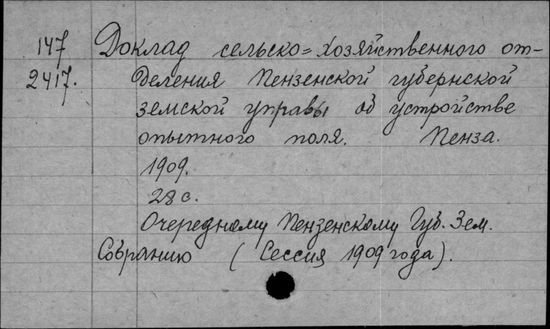 147 Доклад сельско=хозяйственного от-
2417. деления Пензенской губернской
земской управы об устройстве
опытного поля. Пенза.
1909.
28 с.
Очередному Пензенскому Губ. Зем.
Собранию (Сессия 1909 года).